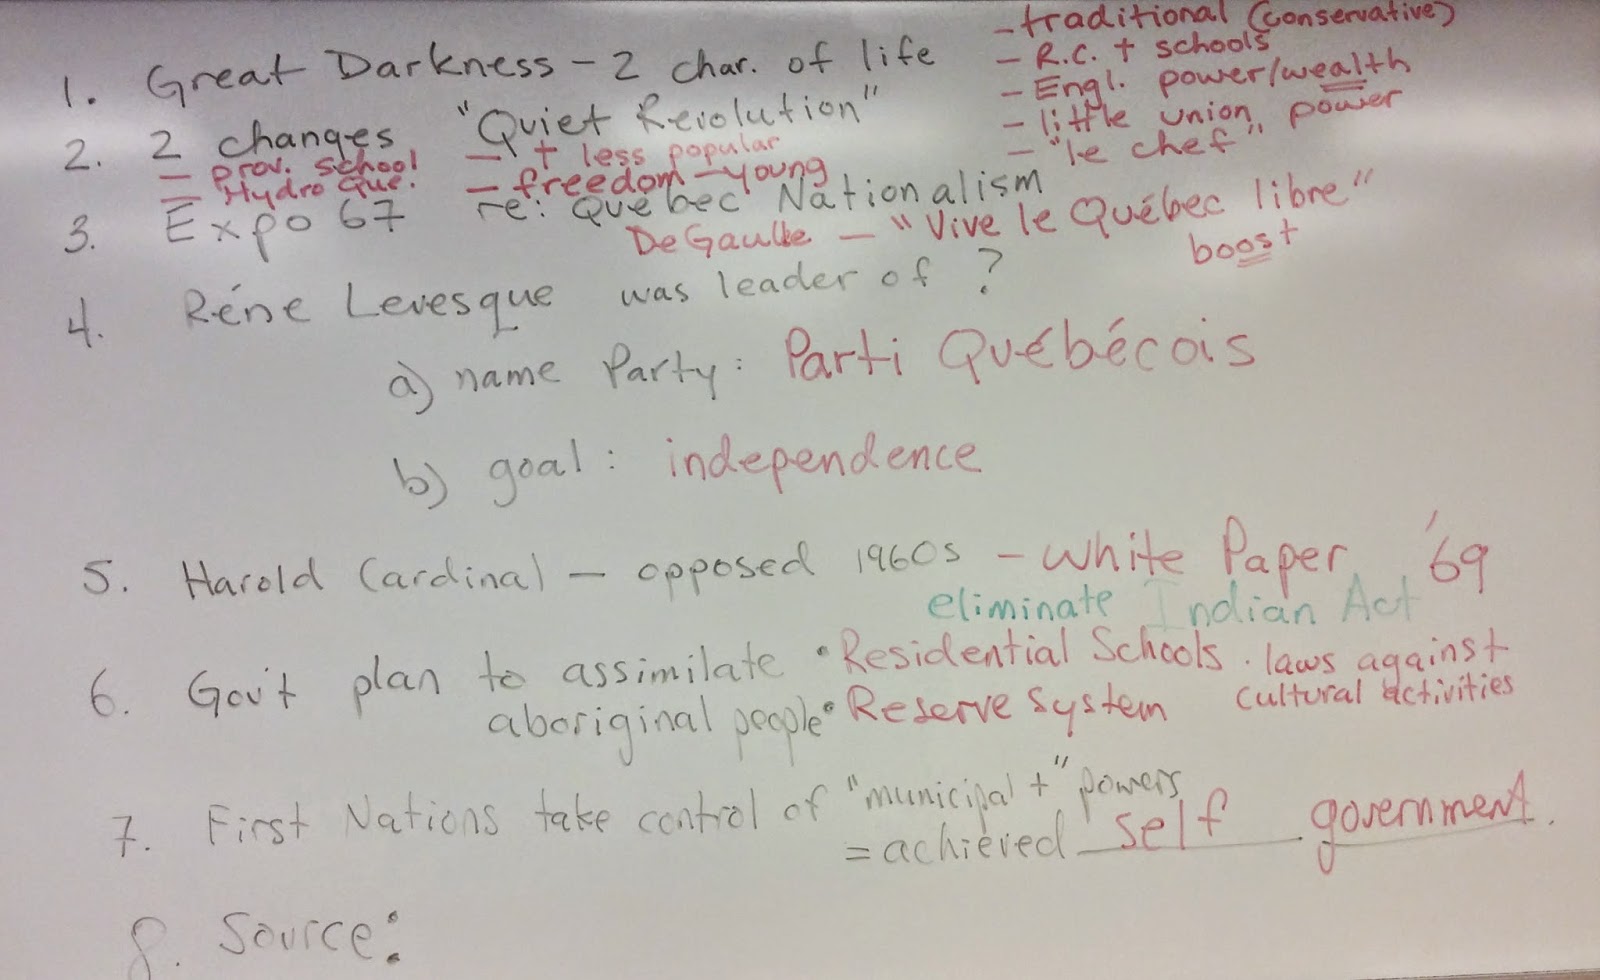 1. Great Darkness - 2 char. of life
- traditional (conservative)
- R.C. + schools
- Engl. power/wealth
- little union power
- "le chef"
2. 2 changes "Quiet Revolution"
- prov. school
- Hydro Que.
- + less popular
- freedom - young
3. Expo 67 re: Quebec Nationalism
DeGaulle - "Vive le Québec libre"
boost
4. Réne Levesque was leader of ?
a) name Party: Parti Québécois
b) goal: independence
5. Harold Cardinal - opposed 1960s - White Paper '69
eliminate Indian Act
6. Gov't plan to assimilate • Residential Schools • laws against
aboriginal people • Reserve System cultural activities
7. First Nations take control of "municipal +" powers
= achieved self government.
8. Source: